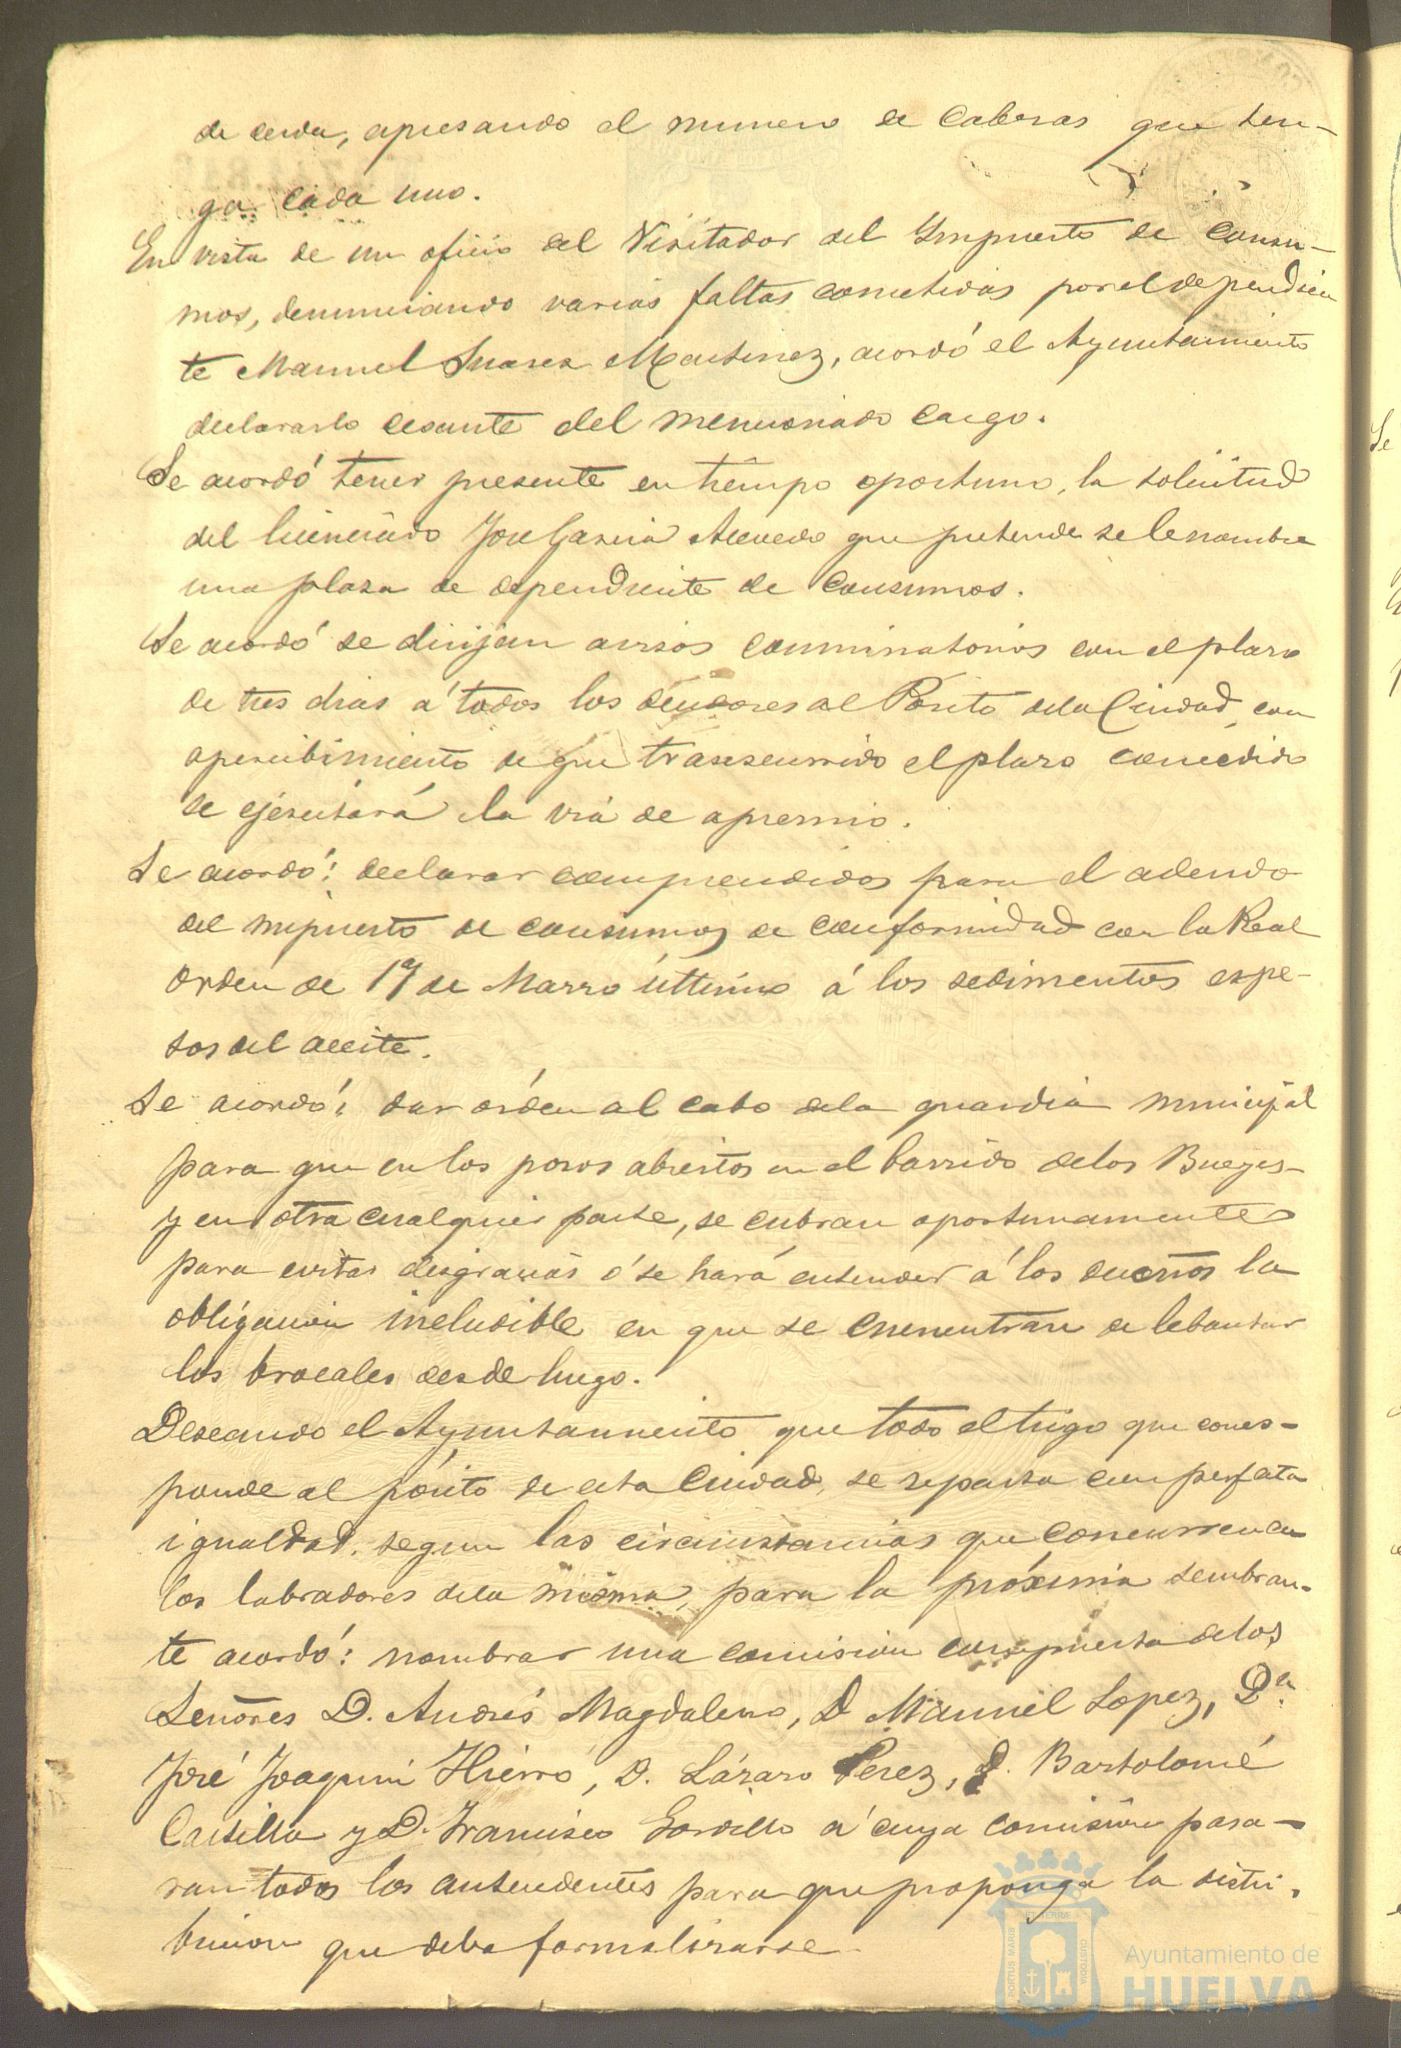 de cerda, apresando el numero de cabezas que ten-
ga cada uno.
En vista de un oficio del Visitador del Ympuesto de Consu-
mos, denunciando varias faltas cometidas por el dependien
te Manuel Suarez Martinez, acordó el Ayuntamiento
declararlo cesante del mencionado cargo.
Se acordó tener presente en tiempo oportuno, la solicitud
del licenciado Jose Garcia Acevedo que pretende se le nombre
una plaza de dependiente de Consumos.
Se acordó se dirijan avisos conminatorios con el plazo
de tres dias á todos los deudores al Pósito de la Ciudad, con
apercibimiento de que trasescurrido el plazo concedido
se ejecutará la via de apremio.
Se acordó: declarar comprendidos para el adeudo
del impuesto de consumos de conformidad con la Real
orden de 17 de Marzo último á los sedimentos espe-
sos del aceite.
Se acordó: dar órden al cabo de la guardia municipal
para que en los pozos abiertos en el barrido de los Bueyes
y en otra cualquier parte, se cubran oportunamente
para evitar desgracias ó se hará entender á los dueños la
obligacion ineludible en que se encuentran de lebantar
los brocales desde luego.
Deseando el Ayuntamiento que todo el trigo que corres-
ponde al pósito de esta Ciudad, se reparta con perfecta
igualdad, segun las circunstancias que concurren en
los labradores de la misma, para la próxima sembran-
te acordó: nombrar una comision compuesta de los
Señores D. Andrés Magdaleno, D Manuel Lopez, Dn
José Joaquin Hierro, D. Lázaro Perez, D. Bartolomé
Castilla y D. Francisco Gordillo á cuya comision pasa-
ran todos los antecedentes para que proponga la distri-
bucion que deba formalizarse.
Ayuntamiento de
HUELVA